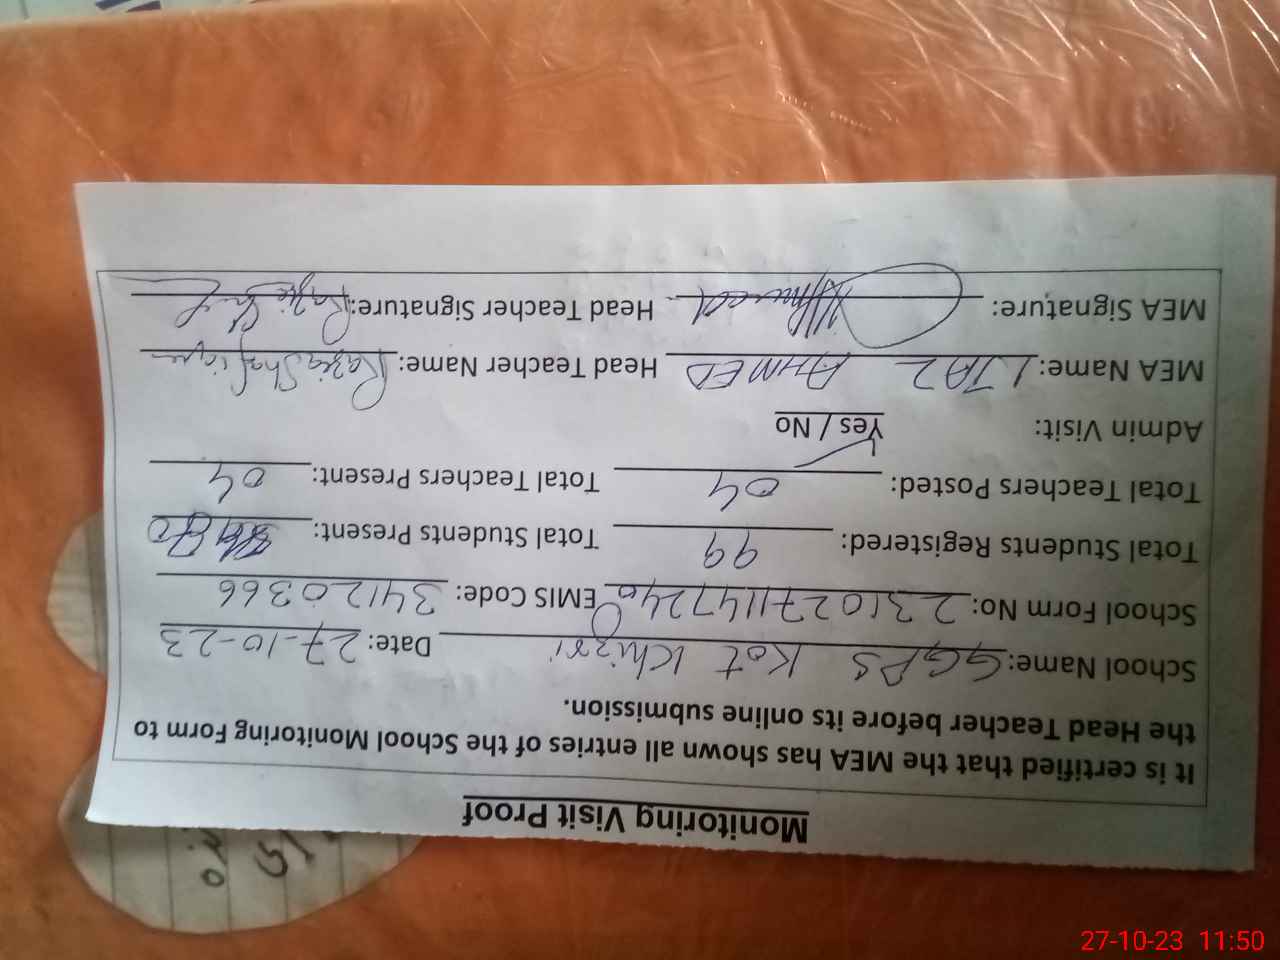 Monitoring Visit Proof
It is certified that the MEA has shown all entries of the School Monitoring Form to
the Head Teacher before its online submission.
School Name: GGPS Kot Khizri Date: 27-10-23
School Form No: 2310271147240 EMIS Code: 34120366
Total Students Registered: 99 Total Students Present: 80
Total Teachers Posted: 04 Total Teachers Present: 04
Admin Visit: Yes / No
MEA Name: IJAZ AHMED Head Teacher Name: Razia Shafique
MEA Signature: Head Teacher Signature: Razia
27-10-23 11:50